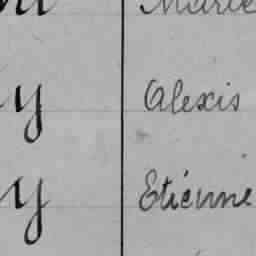 Marie
y Alexis
y Etienne